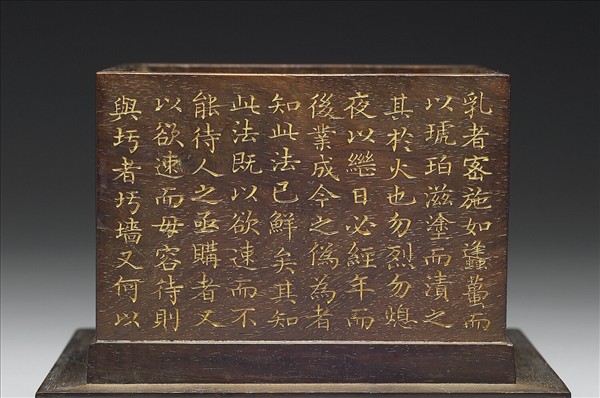 乳者密施如蠭蠆而
以琥珀滋塗而漬之
其於火也勿烈勿熄
夜以繼日必經年而
後業成今之僞為者
知此法已鮮矣其知
此法既以欲速而不
能待人之亟購者又
以欲速而毋容待則
與圬者圬墻又何以